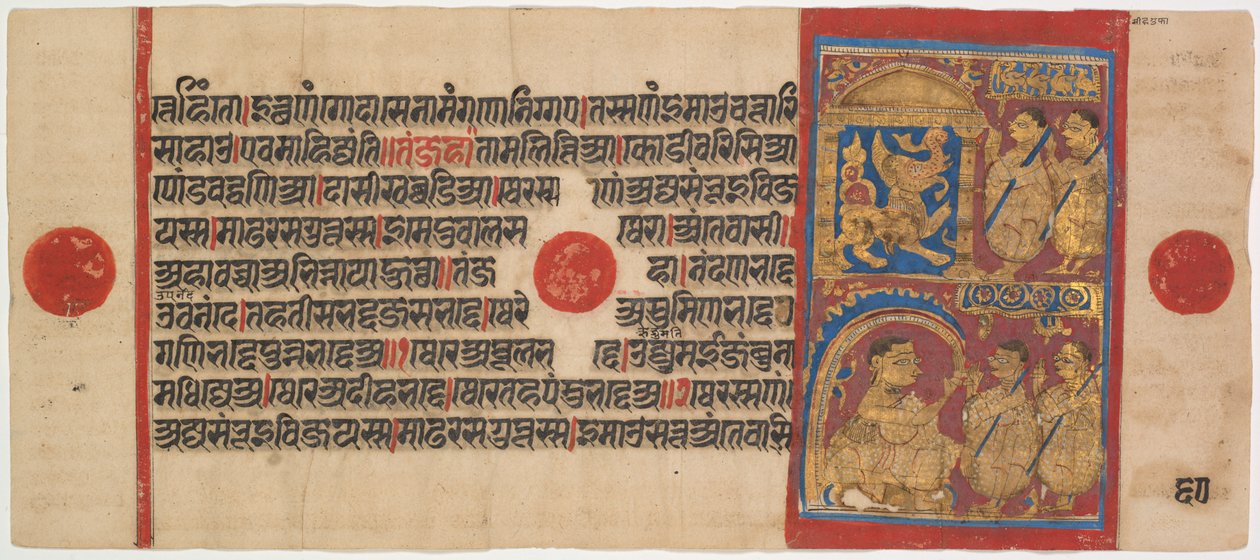 त्तेहिंतो।इत्थणंगोदासेनामंगणेनिग्गए।तस्सणंइमाउचत्तारि
साहाउ।एवमाहिज्जंति॥तंजहा॥तामलित्तिआ।कोडीवरिसिआ
पोंडवद्धणिआ।दासीखब्बडिआ।थेरस्स णंअज्जसंभूइविज
यस्स।माढरसगुत्तस्स।इमेदुवालस थेरा।अंतेवासी॥
अहावच्चाअभिन्नायाहुत्था॥तंज हा।नंदणभद्दे
उपनंद
उवनंदे।तहतीसभद्देजसभद्दे।थेरे अ सुमिणभद्दे
ऋजुमति
गणिभद्देपुन्नभद्देअ॥१थेरेअथूलभ द्दे।उज्जुमईजंबुना
मधिज्जेअ।थेरेअदीहभद्दे।थेरेतहपंडुभद्देअ॥२थेरस्सणं
अज्जसंभूइविजयस्स।माढरसगुत्तस्स।इमाउसत्तअंतेवासि
६०